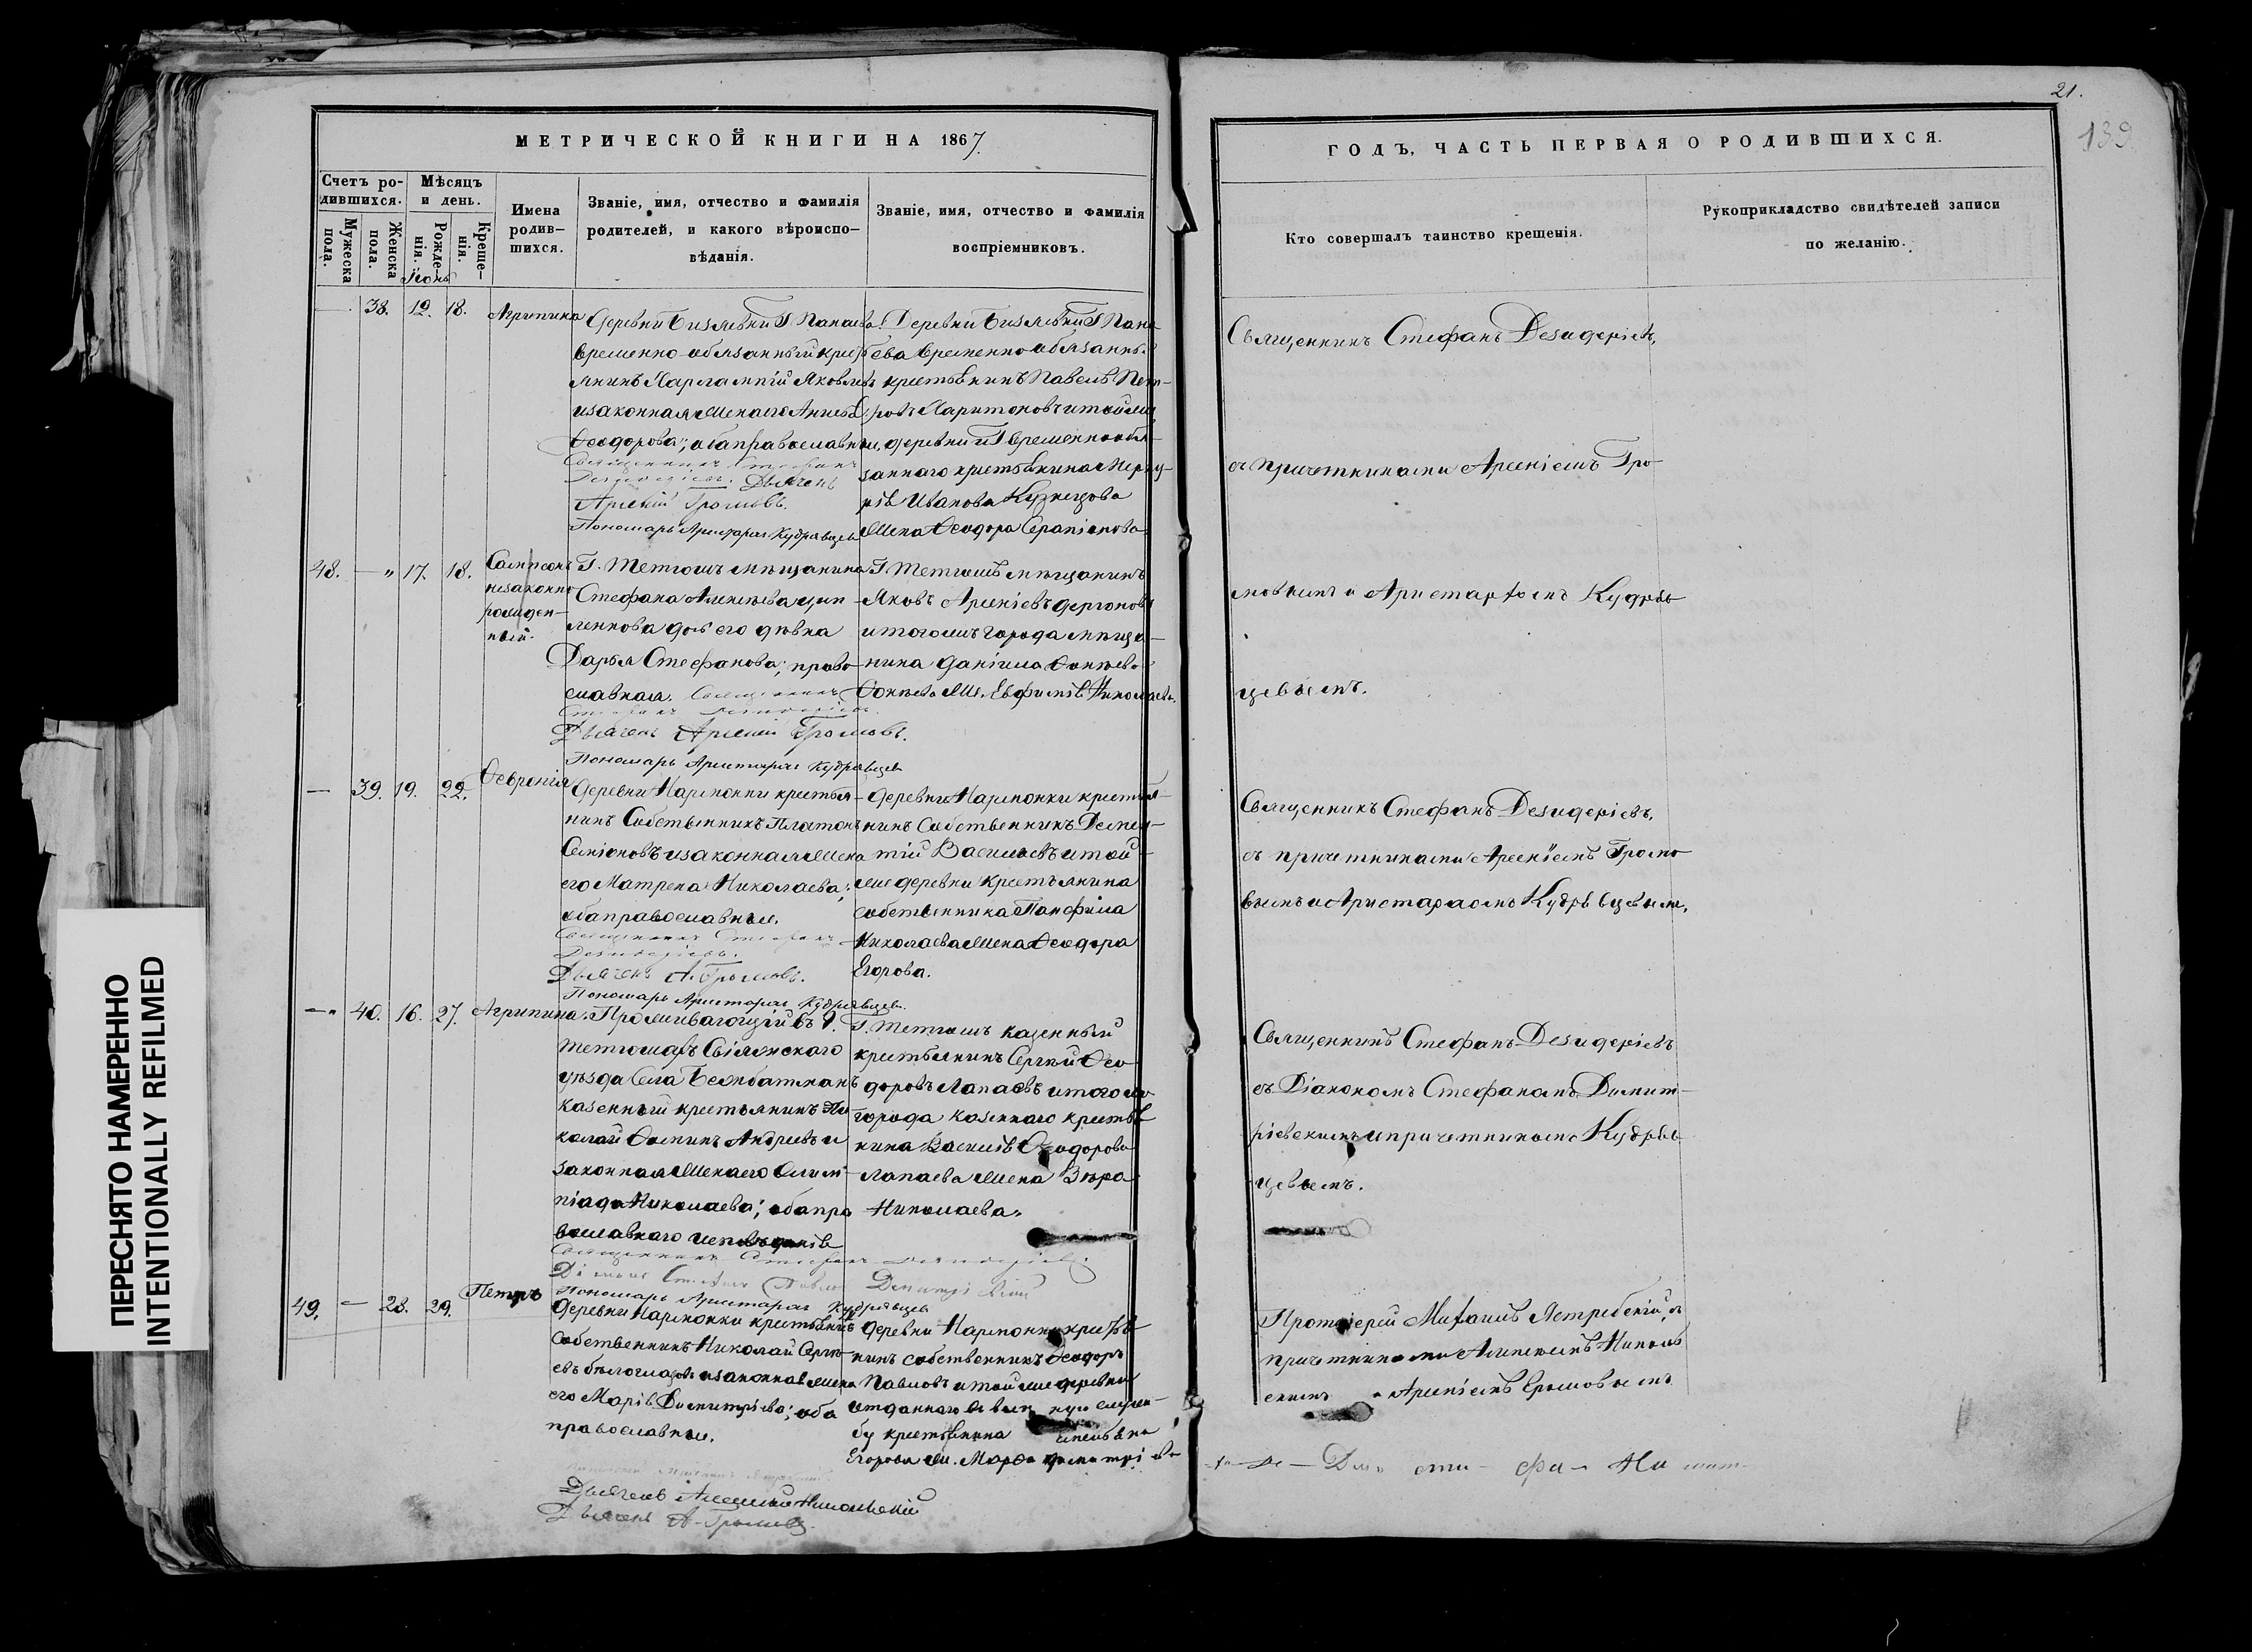 21.
139
МЕТРИЧЕСКОЙ КНИГИ НА 1867.
ГОДЪ, ЧАСТЬ ПЕРВАЯ О РОДИВШИХСЯ.
Счетъ ро-
дившихся.
Мѣсяцъ
и день.
Мужеска
пола.
Женска
пола.
Рожде-
нія.
Креще-
нія.
Имена
родив-
шихся.
Званіе, имя, отчество и фамилія
родителей, и какого вѣроиспо-
вѣданія.
Званіе, имя, отчество и фамилія
воспріемниковъ.
Кто совершалъ таинство крещенія.
Рукоприкладство свидѣтелей записи
по желанію.
38. 12. 18. Агрипина
Деревни Г Панаева
временно-обязанный крес
янинъ Харлампій Яковлевъ
изаконная жена его
Ѳеодорова; оба православные
Священникъ Стефанъ
Дезидеріевъ. Дьячекъ
Арсеній Громовъ.
Пономарь Аристархъ Кудрявцевъ
Деревни Г Пана-
ева временно-обязанный
крестьянинъ Павелъ Пет-
ровъ Харитоновъ итойже
деревни иГ временнообя-
заннаго крестьянина
Иванова Кузнецова
жена Ѳеодора Серапіонова
Священникъ Стефанъ Дезидеріевъ,
съ причетниками Арсеніемъ Гро-
мовымъ и Аристархомъ Кудряв-
цевымъ.
48. — " 17. 18. Сампсонъ
незаконно
рожден-
ный.
Г. Тетюшъ мѣщанина
Стефана Алексѣева
дочь его дѣвка
Дарья Стефанова; право-
славная. Священникъ
Стефанъ Дезидеріевъ.
Дьячекъ Арсеній Громовъ.
Пономарь Аристархъ Кудрявцевъ
Г. Тетюшъ мѣщанинъ
Яковъ Арсеніевъ
итогожъ города мѣща-
нина Даніила
Ж. Евфимія Николаева.
— 39. 19. 22. Ѳевронія
Деревни Нармонки крестья-
нинъ Собственникъ Платонъ
Семіоновъ изаконная жена
его Матрена Николаева;
оба православные.
Священникъ Стефанъ
Дезидеріевъ.
Дьячекъ А. Громовъ.
Пономарь Аристархъ Кудрявцевъ.
Деревни Нармонки крестья-
нинъ Собственникъ Демен-
тій Васильевъ итой-
же деревни крестьянина
собственника Панфила
Николаева жена Ѳеодора
Егорова.
Священникъ Стефанъ Дезидеріевъ,
съ причетниками Арсеніемъ Громо
вымъ и Аристархомъ Кудрявцевымъ.
— " 40. 16. 27. Агрипина.
Проживающій въ Г.
Тетюшахъ Свіяжскаго
уѣзда Села
казенный крестьянинъ Ни-
колай Ѳоминъ Андреевъ и
законная жена его Олим-
піада Николаева; оба пра
вославнаго исповѣданія
Священникъ Стефанъ Дезидеріевъ
Пономарь Аристархъ Кудрявцевъ
Г. Тетюшъ казенный
крестьянинъ Сергѣй Ѳео-
доровъ Лапаевъ итогоже
города казеннаго крестья
нина Василія Ѳеодорова
Лапаева жена Вѣра
Николаева.
Священникъ Стефанъ Дезидеріевъ
съ Діакономъ Стефаномъ Димит-
ріевскимъ и причетникомъ Кудряв-
цевымъ.
49. — 28. 29. Петръ
Деревни Нармонки крестьянинъ
собственникъ Николай Сергѣ-
евъ изаконная жена
его Марія Димитріева; оба
православные.
Дьячекъ Алексѣй Никольскій
Дьячекъ А. Громовъ.
Деревни Нармонки крестья
нинъ собственникъ Ѳеодоръ
Павловъ и той же деревни
отданнаго въ служ-
бу крестьянина
Егорова ж. Марѳа Димитріева
Протоіерей Михаилъ Ястребскій, съ
причетниками Алексѣемъ Николь
скимъ и Арсеніемъ Громовымъ
ПЕРЕСНЯТО НАМЕРЕННО
INTENTIONALLY REFILMED